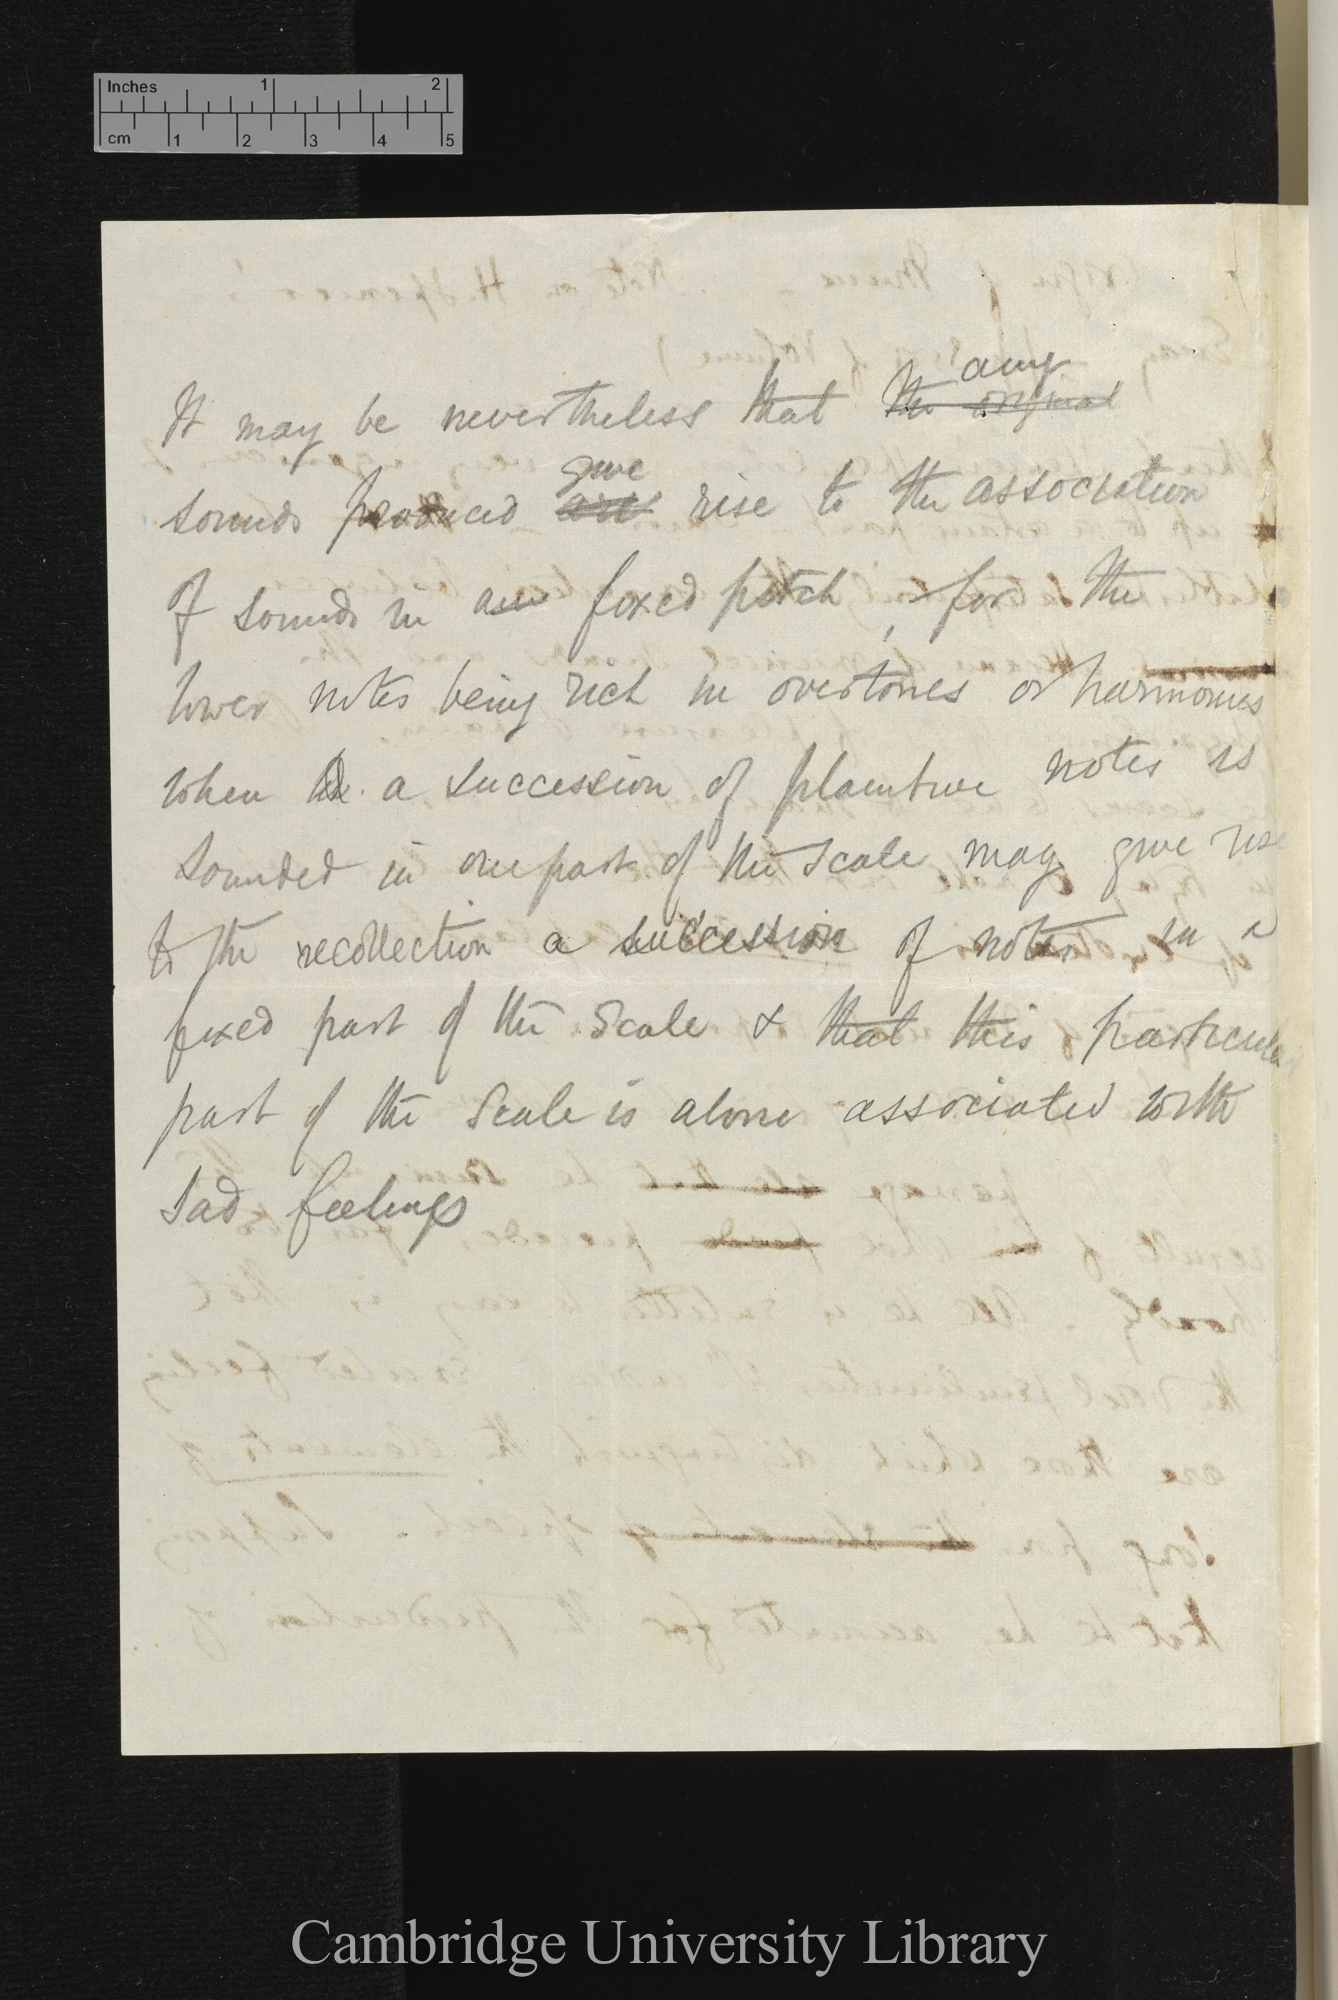 Inches 1 2
cm 1 2 3 4 5
any
It may be nevertheless that the original
give
sounds produced are rise to the association
of sounds in a fixed pitch, for the
lower notes being rich in overtones or harmonies
when a succession of plaintive notes is
sounded in one part of the scale may give rise
to the recollection a succession of notes in a
fixed part of the scale & that this particular
part of the scale is alone associated with
sad feelings
Cambridge University Library